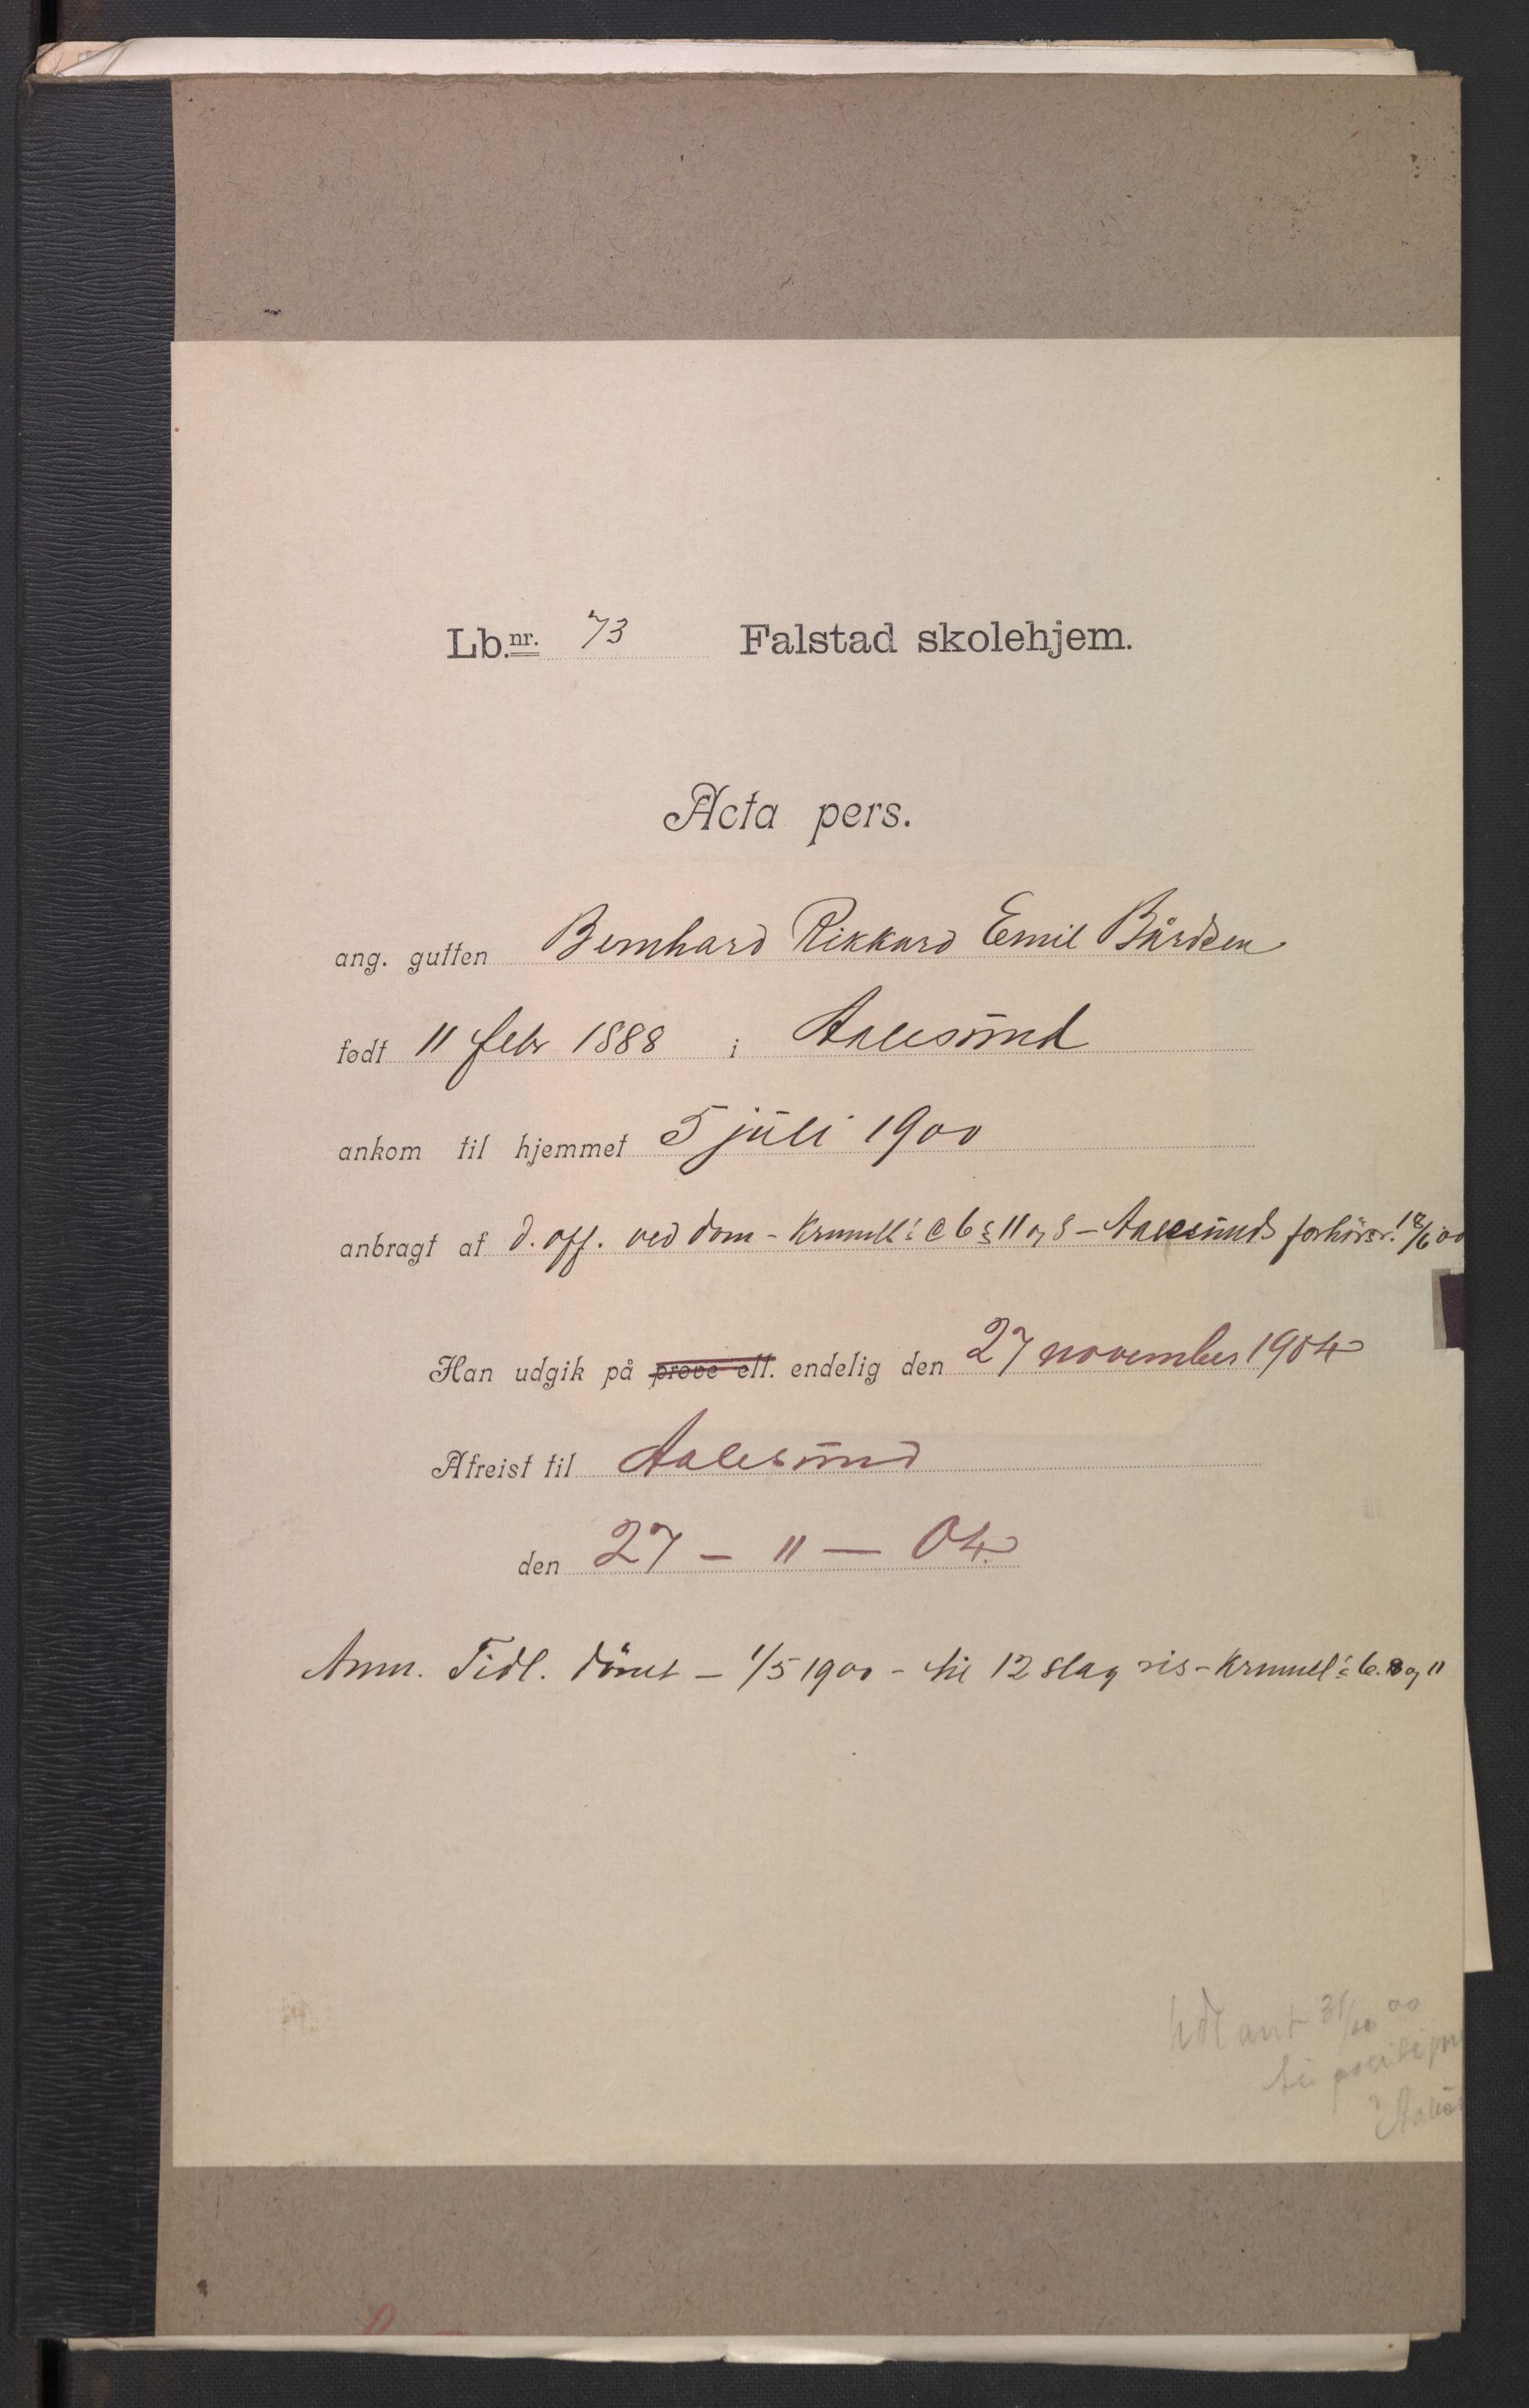 Lb.nr. 73 Falstad skolehjem.
Acta pers.
ang. gutten Bernhard Rikkard Emil Bårdsen
født 11 febr 1888 i Aalesund
ankom til hjemmet 5 juli 1900
anbragt af d. off. ved dom - Krimll: c 6 § 11 og 8 - Aalesunds forhörsr. 18/6 00
Han udgik på prøve ell. endelig den 27 november 1904
Afreist til Aalesund
den 27 - 11 - 04.
Anm. Tidl. dömt - 1/5 1900 - til 12 slag ris - Krimll: 6. 8 og 11
31/10 00
til